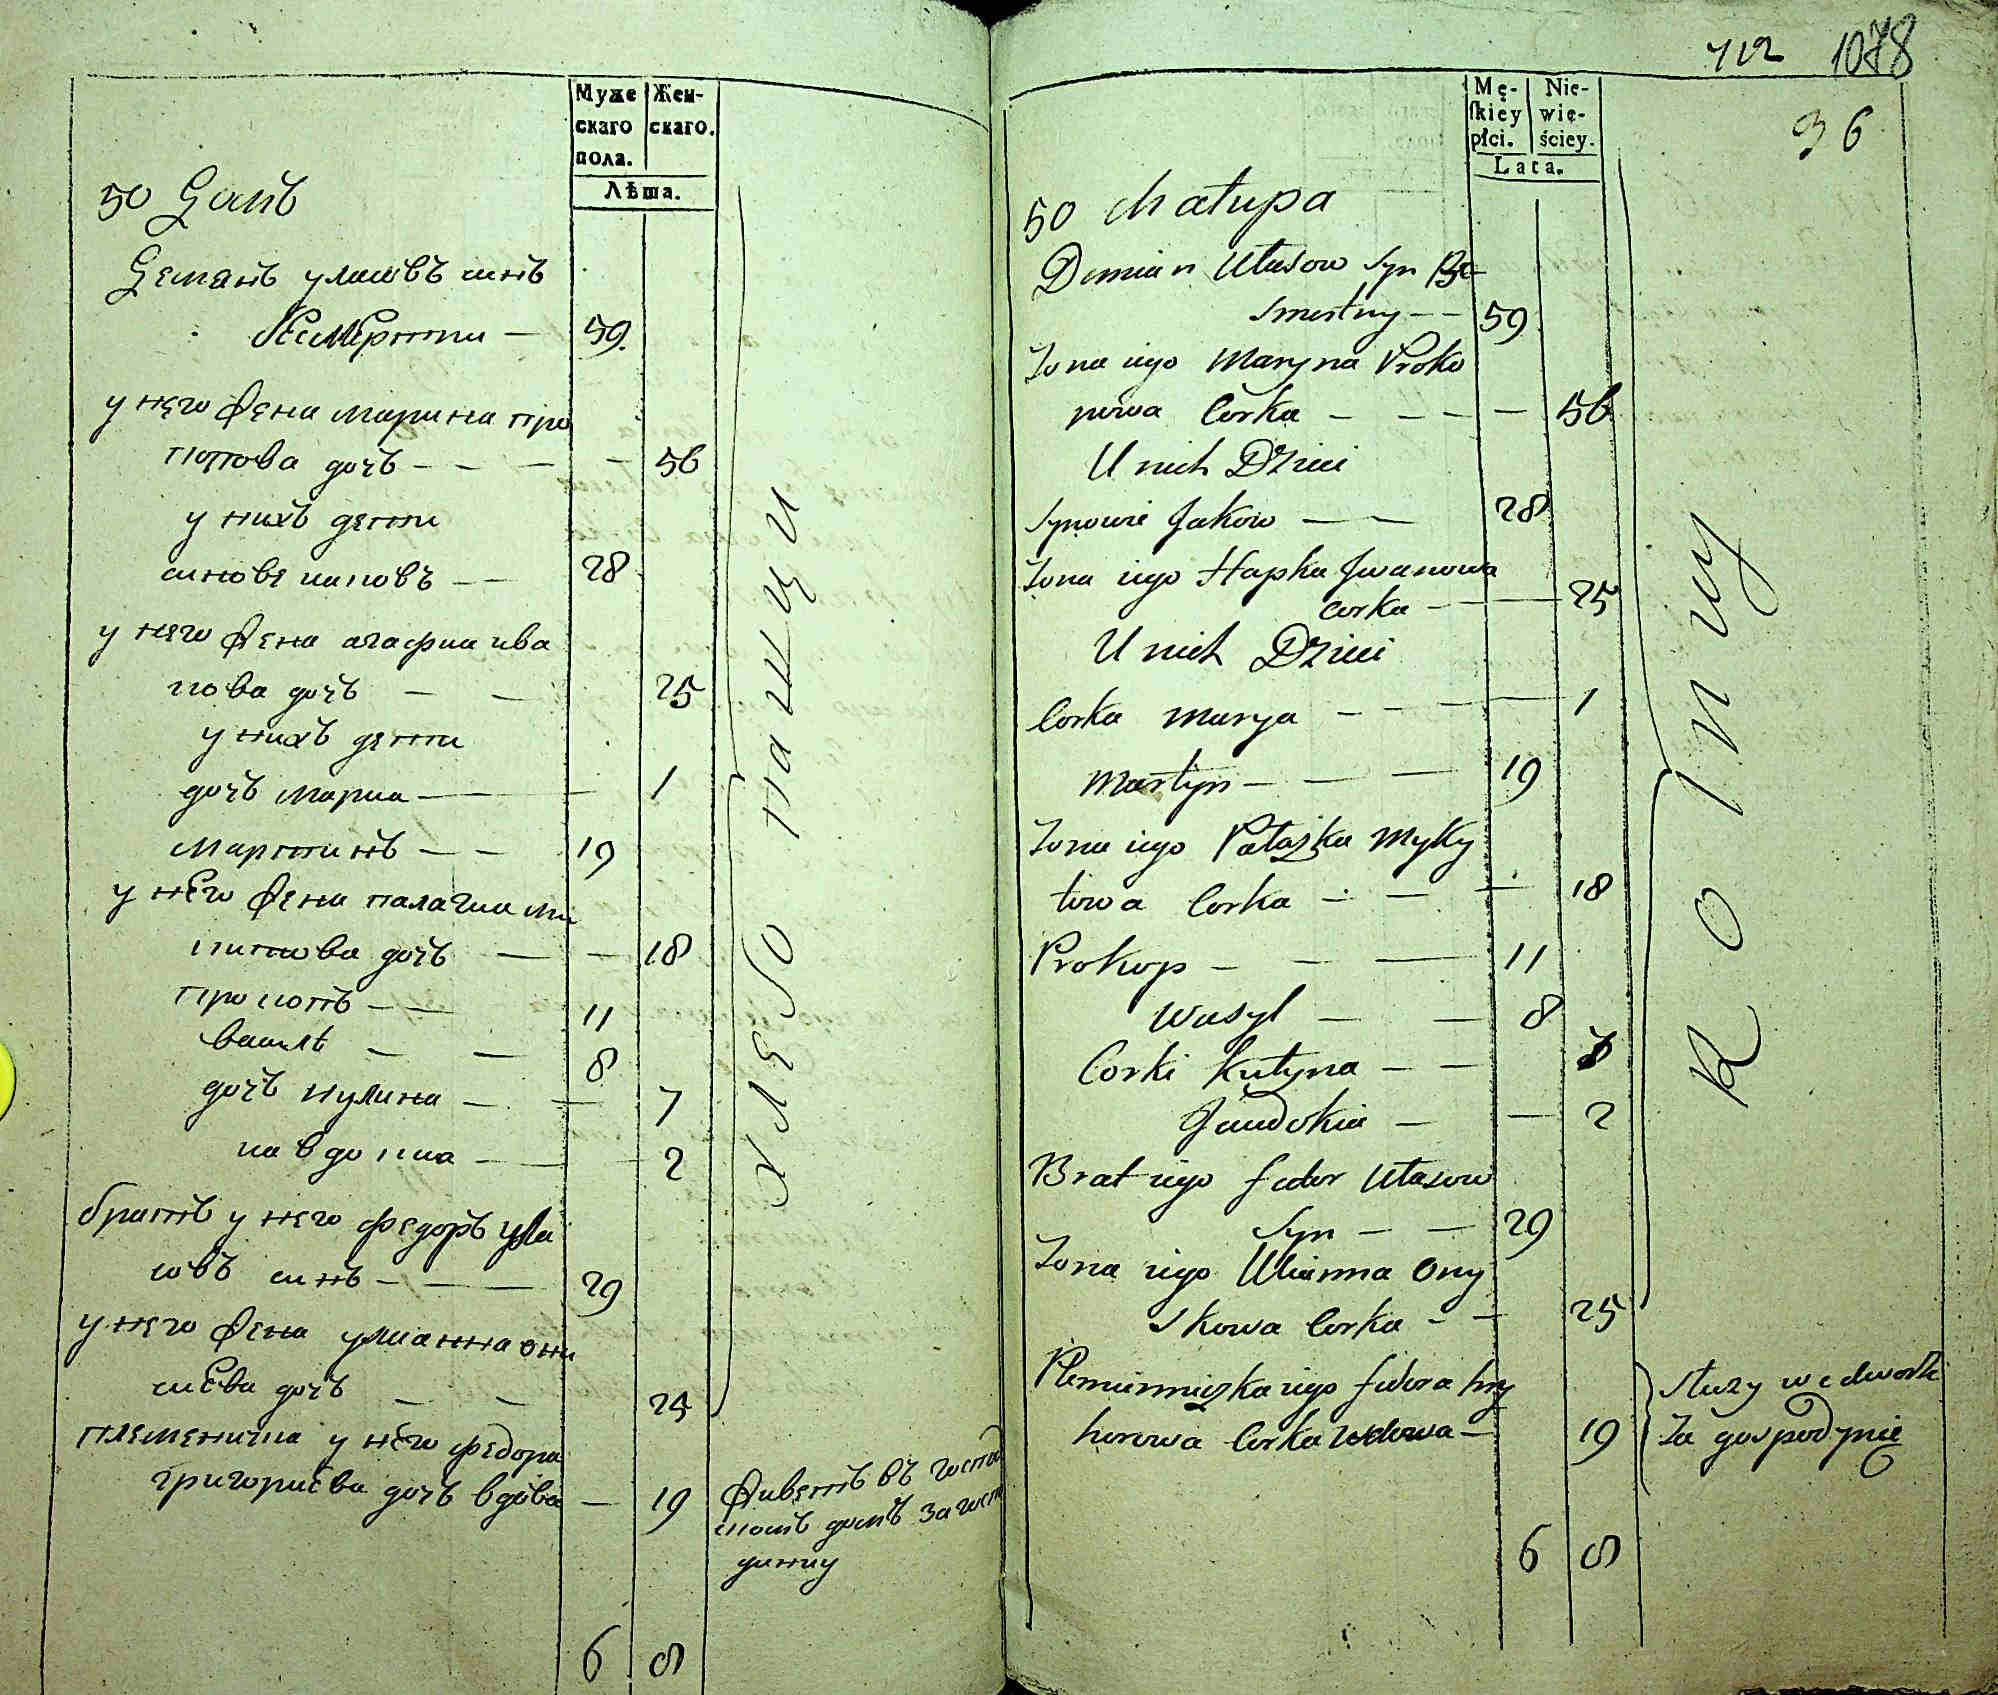 Муже Жен-
скаго скаго.
пола.
Лѣта.
50 Домъ
Демянъ уласовъ синъ
бесмертни — 59
у него жена марина про
попова дочъ — 56
у нихъ дети
синове яковъ — 28
у него жена агафиа ива
нова дочъ — 25
у нихъ дети
дочъ мариа — 1
мартинъ — 19
у него жена палагиа ми
китова дочъ — 18
прокопъ — 11
василь — 8
дочъ 7
явдокиа — 2
братъ у него федоръ ула
совъ синъ — 29
у него жена улианна они
сиева дочъ — 25
племеница у него федора
григориева дочъ вдова — 19
живетъ въ господ
скомъ домѣ за госпо
диниу
6 8
хлебо пашци
712 1078
36
Mę- Nie-
skiey wie-
płci. ściey.
Lata.
50 Chałupa
Demian Ułasow Syn Be
smertny — 59
Zona iego Maryna Proko
powa Corka — 56
U nich Dzieci
Synowie Jakow — 28
Zona iego Hapka Jwanowa
Corka — 25
U nich Dzieci
Corka Marya — 1
Martyn — 19
Zona iego Pałażka Myky
towa Corka — 18
Prokop — 11
Wasyl — 8
Corki Kułyna — 7
Jawdokia — 2
Brat iego Fedor Ułasow
Syn — 29
Zona iego Ulianna Ony
skowa Corka — 25
Plemienniczka iego Fedora hry
horowa Corka Wdowa — 19
służy we dworze
Za gospodynię
6 8
Rolniy